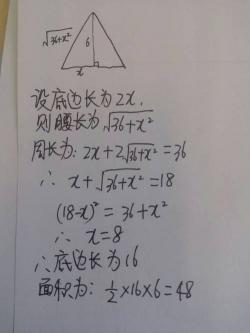 √36+x²
6
x
设底边长为2x,
则腰长为√36+x²
周长为: 2x+2√36+x²=36
∴ x+√36+x²=18
(18-x)²=36+x²
∴ x=8
∴底边长为16
面积为: ½×16×6=48